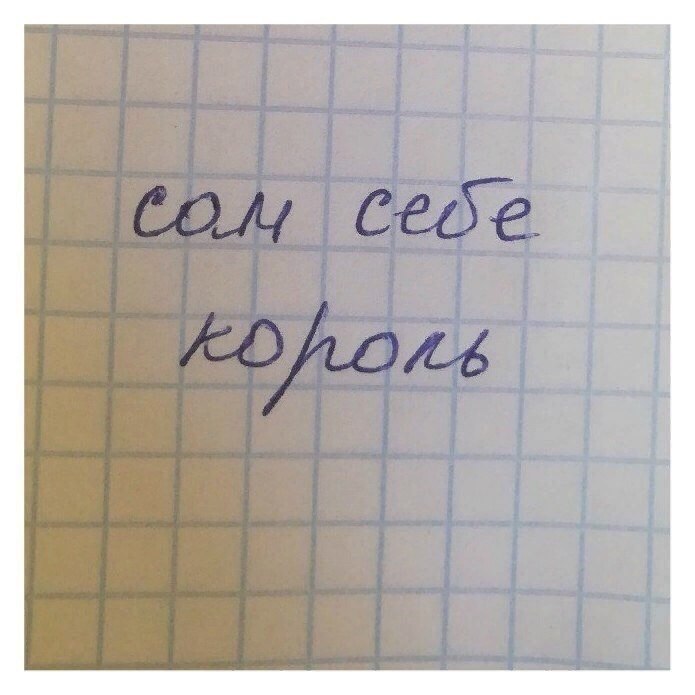 сом себе
король